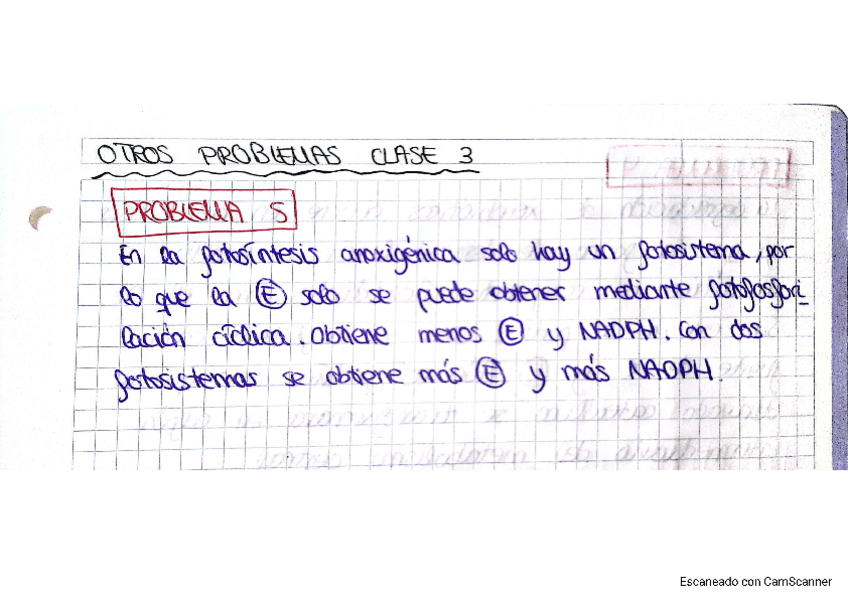 OTROS PROBLEMAS CLASE 3
PROBLEMA 5
En la fotosíntesis anoxigénica solo hay un fotosistema, por
lo que la Ⓔ solo se puede obtener mediante fotofosfori
lación cíclica. Obtiene menos Ⓔ y NADPH. Con dos
fotosistemas se obtiene más Ⓔ y más NADPH.
Escaneado con CamScanner